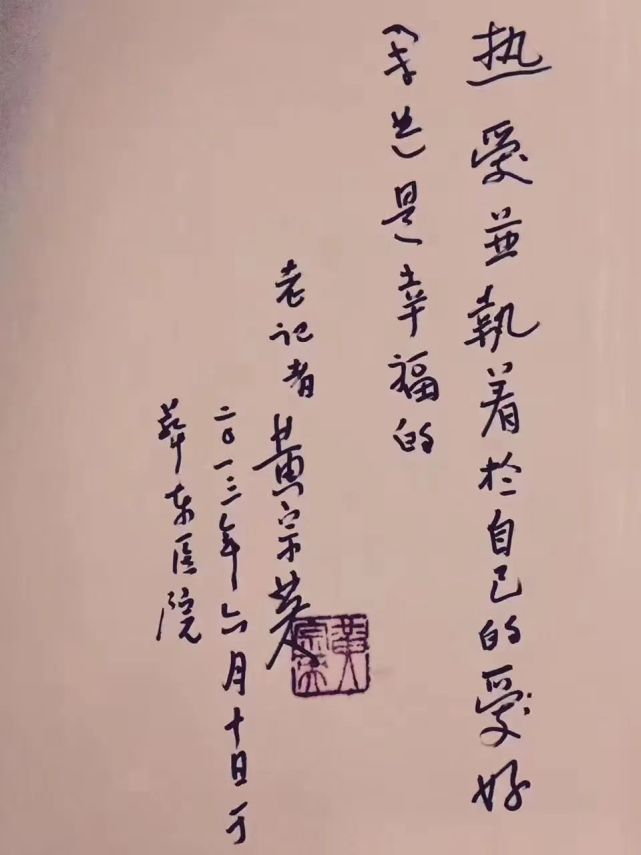 热爱並執着於自己的爱好
(事业)是幸福的
老记者 黄宗英
二〇一三年六月十日于
華东医院
黄宗英